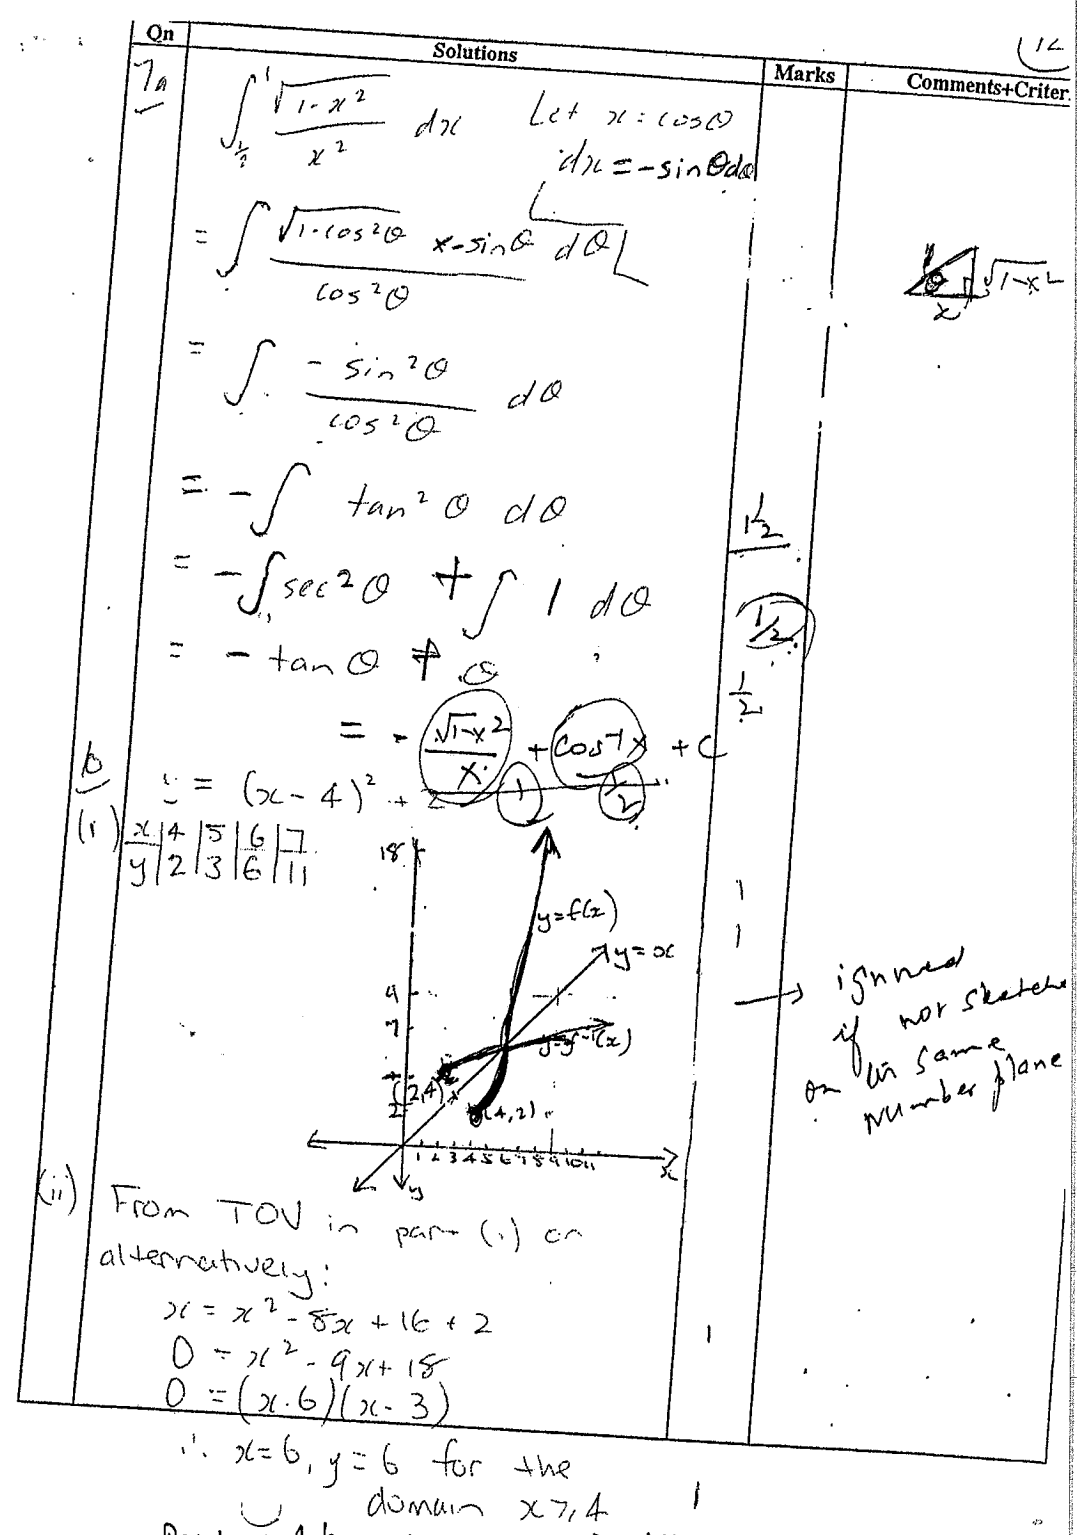 Qn Solutions Marks Comments+Criter
7a ∫ from ½ to 1 √(1-x²)/x² dx Let x = cosθ
dx = -sinθdθ
= ∫ √(1-cos²θ) x-sinθ dθ / cos²θ
1 θ √1-x²
x
= ∫ -sin²θ/cos²θ dθ
= -∫ tan²θ dθ 1½
= -∫sec²θ + ∫ 1 dθ ½
= -tanθ + θ ½
= -√1-x²/x + cos⁻¹x + C
1 ½
b
(i) y = (x-4)² + 2
x 4 5 6 7
y 2 3 6 11
18
y=f(x) 1
y=x 1
9
7
y=f⁻¹(x)
(2,4)
2
(4,2)
1 2 3 4 5 6 7 8 9 10 11
x
y
→ ignored
if not sketche
on same
number plane
(ii) From TOV in part (i) or
alternatively:
x = x² - 8x + 16 + 2
0 = x² - 9x + 18 1
0 = (x-6)(x-3)
∴ x=6, y=6 for the
domain x≥4 1